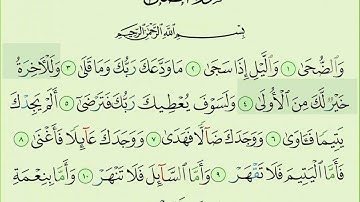 بِسْمِ ٱللَّهِ ٱلرَّحْمَٰنِ ٱلرَّحِيمِ
وَٱلضُّحَىٰ ١ وَٱلَّيْلِ إِذَا سَجَىٰ ٢ مَا وَدَّعَكَ رَبُّكَ وَمَا قَلَىٰ ٣ وَلَلْءَاخِرَةُ
خَيْرٌ لَّكَ مِنَ ٱلْأُولَىٰ ٤ وَلَسَوْفَ يُعْطِيكَ رَبُّكَ فَتَرْضَىٰ ٥ أَلَمْ يَجِدْكَ
يَتِيمًا فَـَٔاوَىٰ ٦ وَوَجَدَكَ ضَآلًّا فَهَدَىٰ ٧ وَوَجَدَكَ عَآئِلًا فَأَغْنَىٰ ٨
فَأَمَّا ٱلْيَتِيمَ فَلَا تَقْهَرْ ٩ وَأَمَّا ٱلسَّآئِلَ فَلَا تَنْهَرْ ١٠ وَأَمَّا بِنِعْمَةِ